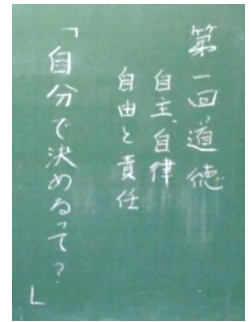 第一回道徳
自主、自律
自由と責任
「自分で決めるって？」